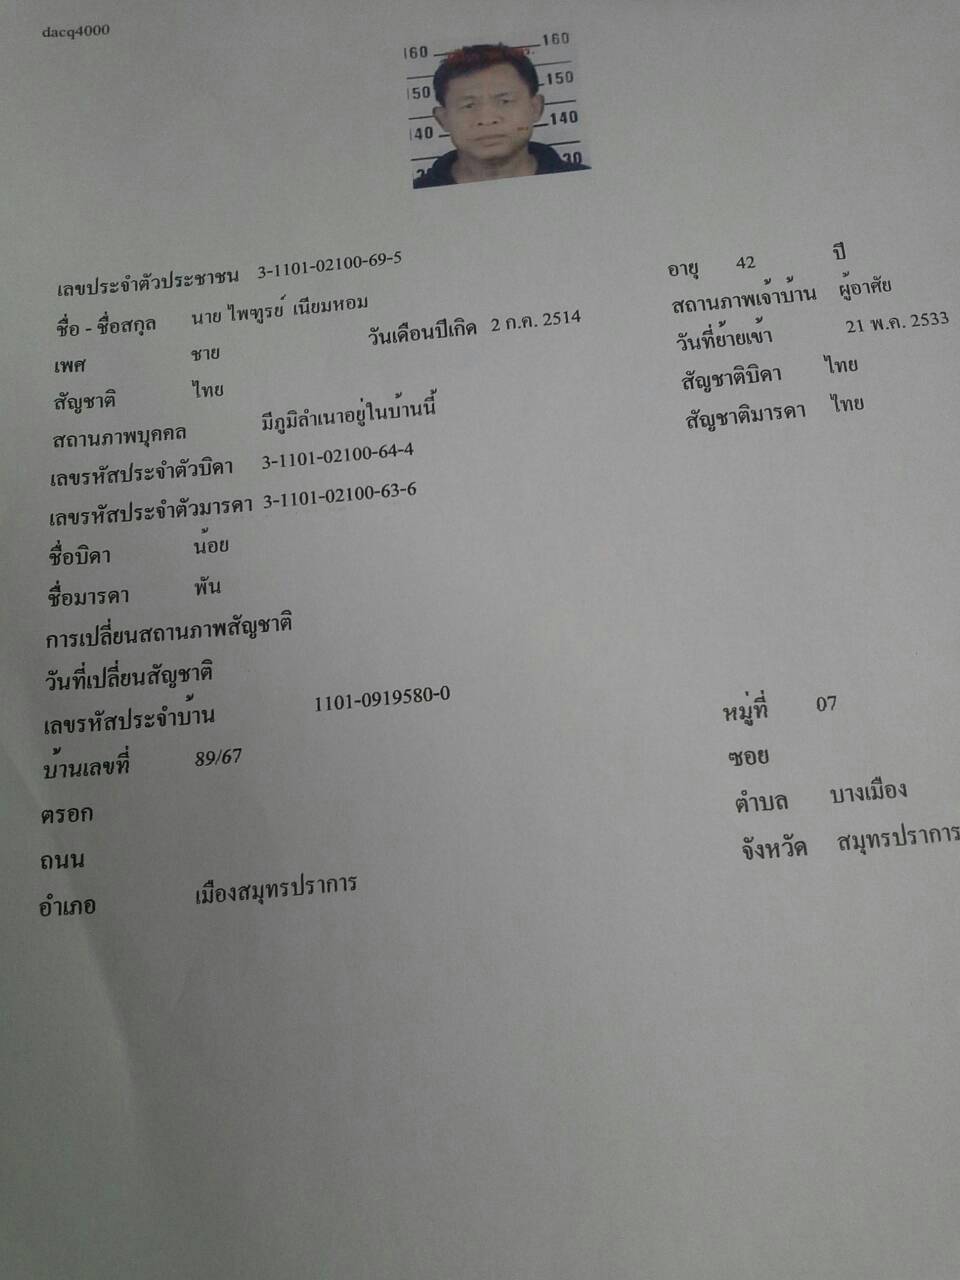 dacq4000
160 160
150 150
140 140
30
เลขประจำตัวประชาชน 3-1101-02100-69-5 อายุ 42 ปี
ชื่อ - ชื่อสกุล นาย ไพฑูรย์ เนียมหอม สถานภาพเจ้าบ้าน ผู้อาศัย
เพศ ชาย วันเดือนปีเกิด 2 ก.ค. 2514 วันที่ย้ายเข้า 21 พ.ค. 2533
สัญชาติ ไทย สัญชาติบิดา ไทย
สถานภาพบุคคล มีภูมิลำเนาอยู่ในบ้านนี้ สัญชาติมารดา ไทย
เลขรหัสประจำตัวบิดา 3-1101-02100-64-4
เลขรหัสประจำตัวมารดา 3-1101-02100-63-6
ชื่อบิดา น้อย
ชื่อมารดา พัน
การเปลี่ยนสถานภาพสัญชาติ
วันที่เปลี่ยนสัญชาติ
เลขรหัสประจำบ้าน 1101-0919580-0
บ้านเลขที่ 89/67 หมู่ที่ 07
ตรอก ซอย
ถนน ตำบล บางเมือง
อำเภอ เมืองสมุทรปราการ จังหวัด สมุทรปราการ